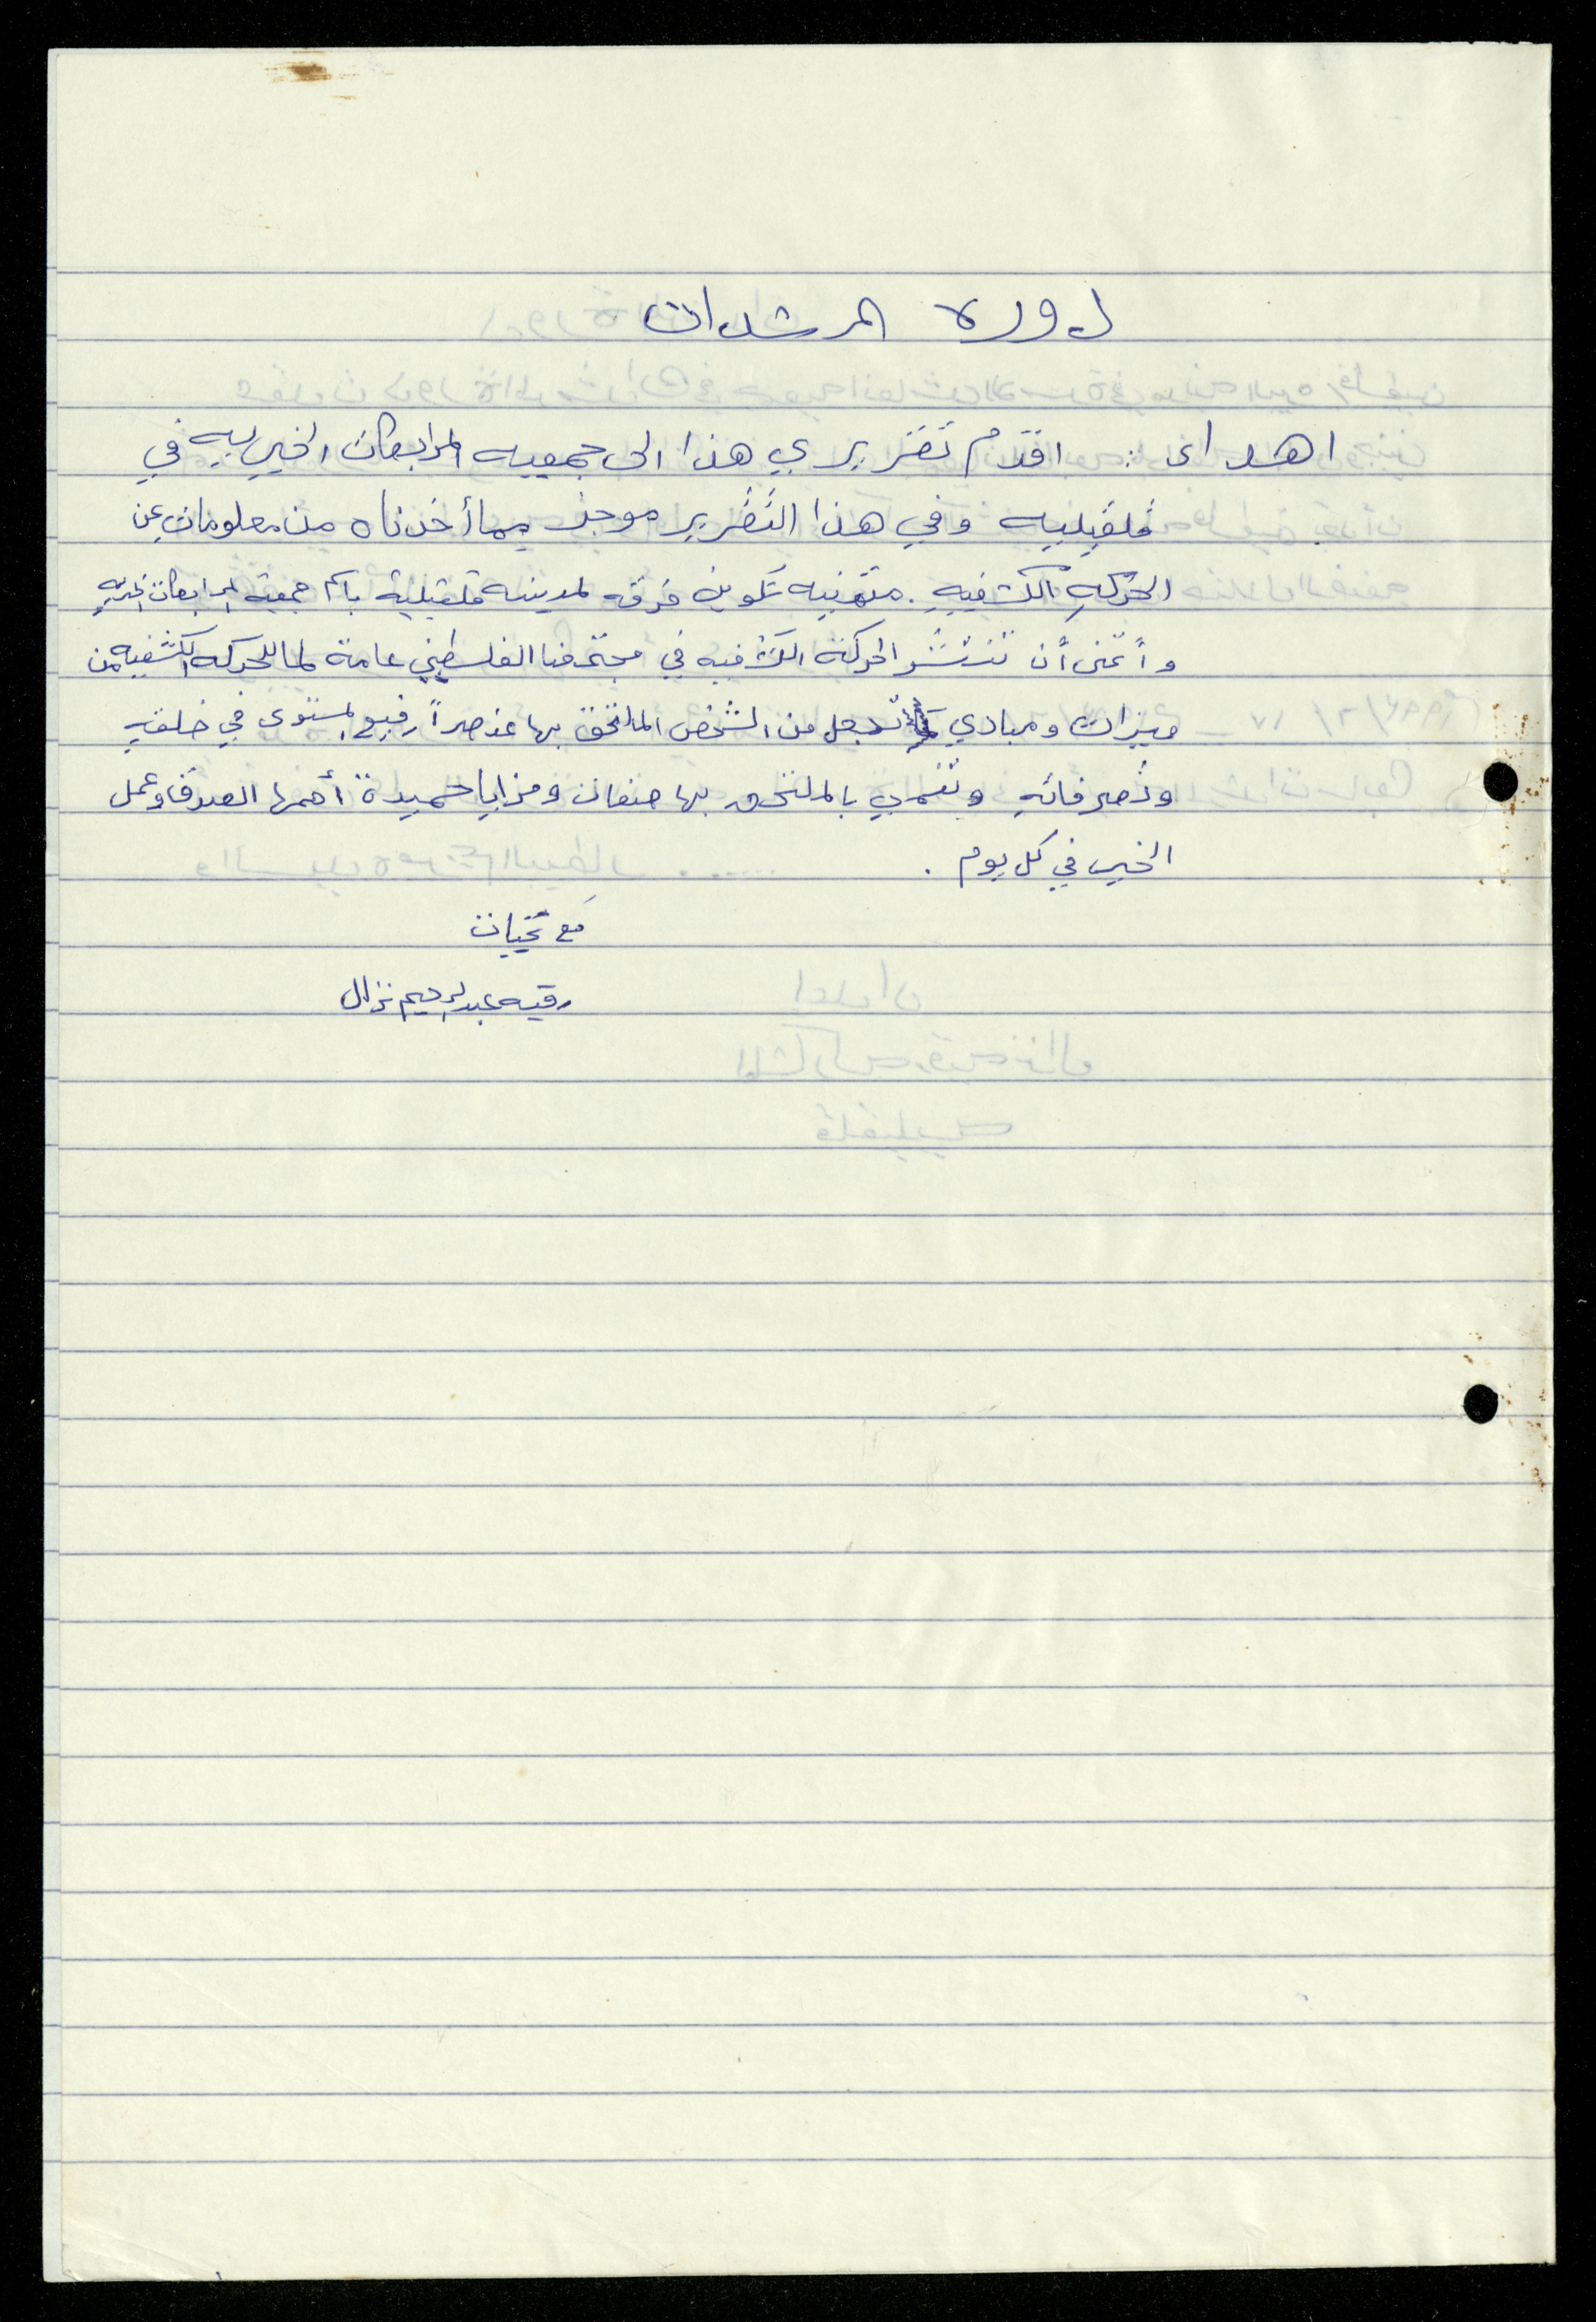 دورة المرشدات
اهداء : اقدم تقريري هذا الى جمعيه المرابطات الخيريه في
قلقيليه وفي هذا التقرير موجز مما أخذناه من معلومات عن
الحركه الكشفيه . متمنيه تكوين فرقه لمدينه قلقيلية باسم جمعية المرابطات الخيريه
وأتمنى أن تنتشر الحركة الكشفيه في مجتمعنا الفلسطيني عامة لما للحركه الكشفيه من
ميزات ومبادي تجعل من الشخص الملتحق بها عنصراً رفيع المستوى في خلقه
وتصرفاته وتنمي بالملتحق بها صفات ومزايا حميدة أهمها الصدق وعمل
الخير في كل يوم .
مع تحيات
رقيه عبدالرحيم نزال